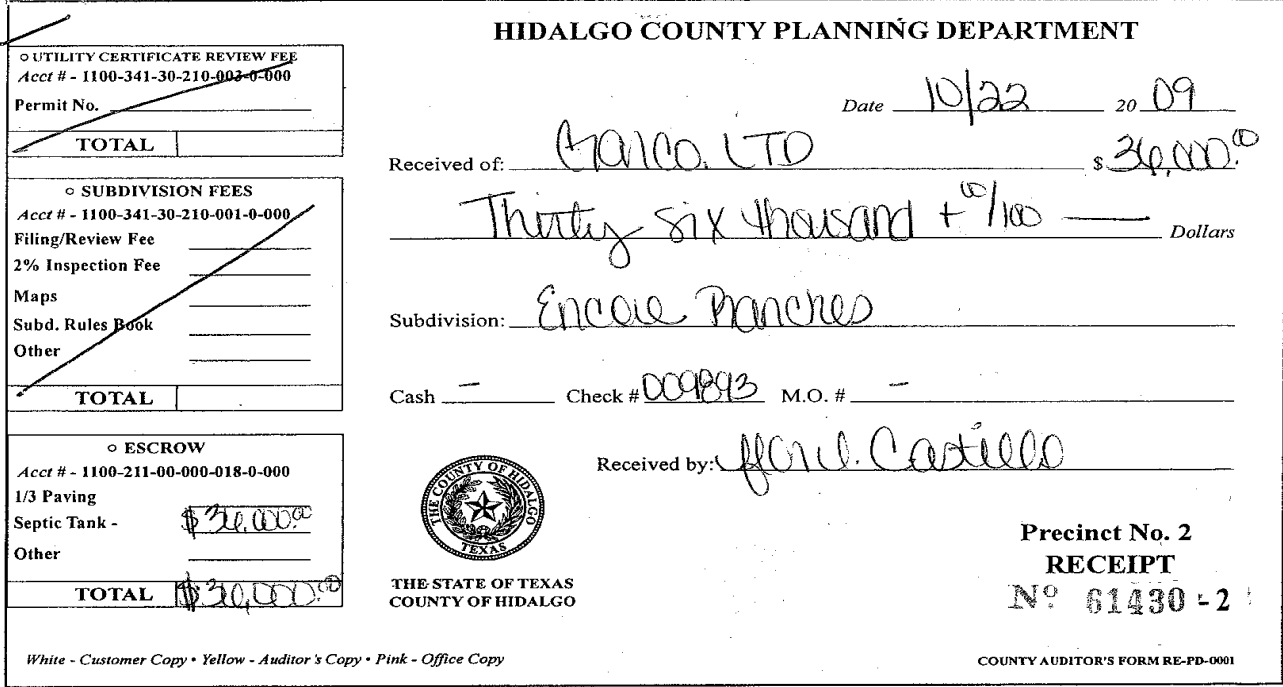 HIDALGO COUNTY PLANNING DEPARTMENT
○ UTILITY CERTIFICATE REVIEW FEE
Acct # - 1100-341-30-210-003-0-000
Permit No.
TOTAL
○ SUBDIVISION FEES
Acct # - 1100-341-30-210-001-0-000
Filing/Review Fee
2% Inspection Fee
Maps
Subd. Rules Book
Other
TOTAL
○ ESCROW
Acct # - 1100-211-00-000-018-0-000
1/3 Paving
Septic Tank - $36,000.00
Other
TOTAL $36,000.00
Date 10/22 20 09
Received of: LTD $ 36,000.00
Thirty six thousand + 00/100 Dollars
Subdivision: Encore Ranches
Cash - Check # 009893 M.O. # -
Received by: Castillo
THE COUNTY OF HIDALGO
TEXAS
THE STATE OF TEXAS
COUNTY OF HIDALGO
Precinct No. 2
RECEIPT
Nº 61430 - 2
White - Customer Copy • Yellow - Auditor's Copy • Pink - Office Copy
COUNTY AUDITOR'S FORM RE-PD-0001